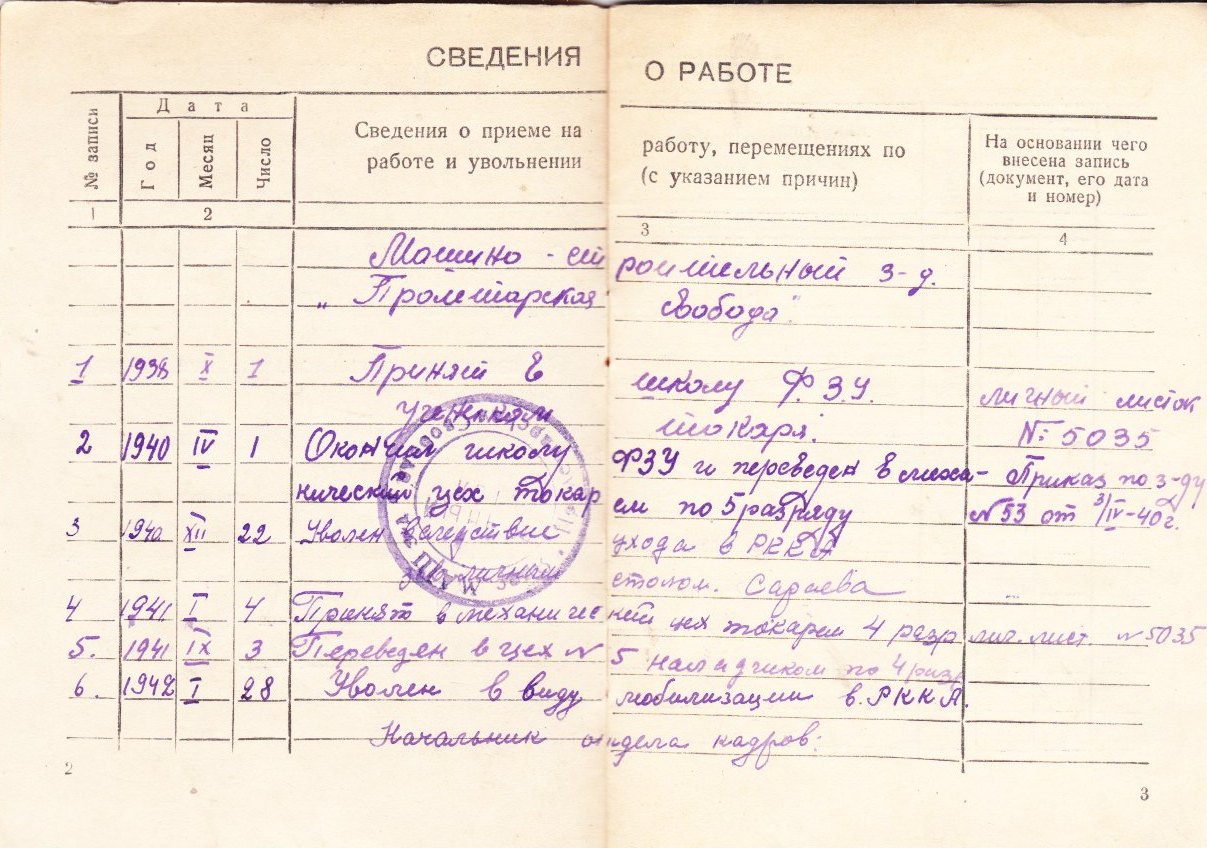 СВЕДЕНИЯ О РАБОТЕ
№ записи
Дата
Год
Месяц
Число
Сведения о приеме на работу, перемещениях по
работе и увольнении (с указанием причин)
На основании чего
внесена запись
(документ, его дата
и номер)
1 2 3 4
Машино-строительный з-д.
„Пролетарская Свобода"
1 1938 X 1 Принят в школу Ф.З.У. личный листок
учеником токаря. №5035
2 1940 IV 1 Окончил школу ФЗУ и переведен в меха- Приказ по з-ду
нический цех токарем по 5 разряду №53 от 3/IV-40г.
3 1940 XII 22 Уволен вследствие ухода в РККА
Зав. личным столом. Сараева
4 1941 I 4 Принят в механический цех токарем 4 разр лич. лист. №5035
5. 1941 IX 3 Переведен в цех № 5 наладчиком по 4 разр
6. 1942 I 28 Уволен в виду мобилизации в РККА.
Начальник отдела кадров:
2
3